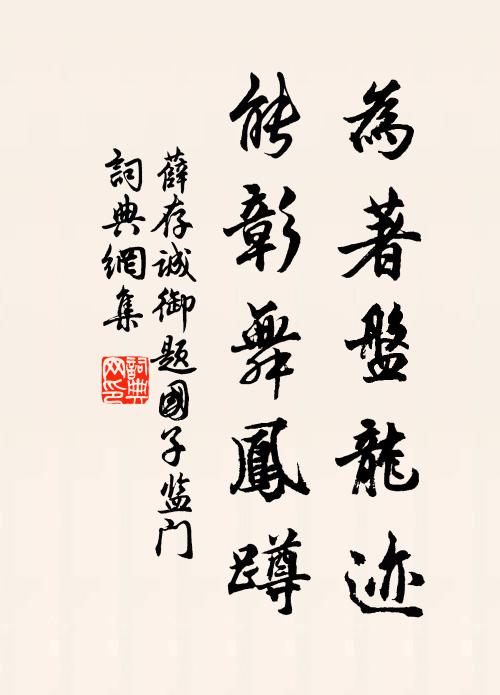 為著盤龍迹
能彰舞鳳蹲
薛存誠御题國子监门
詞典網集
詞典網印